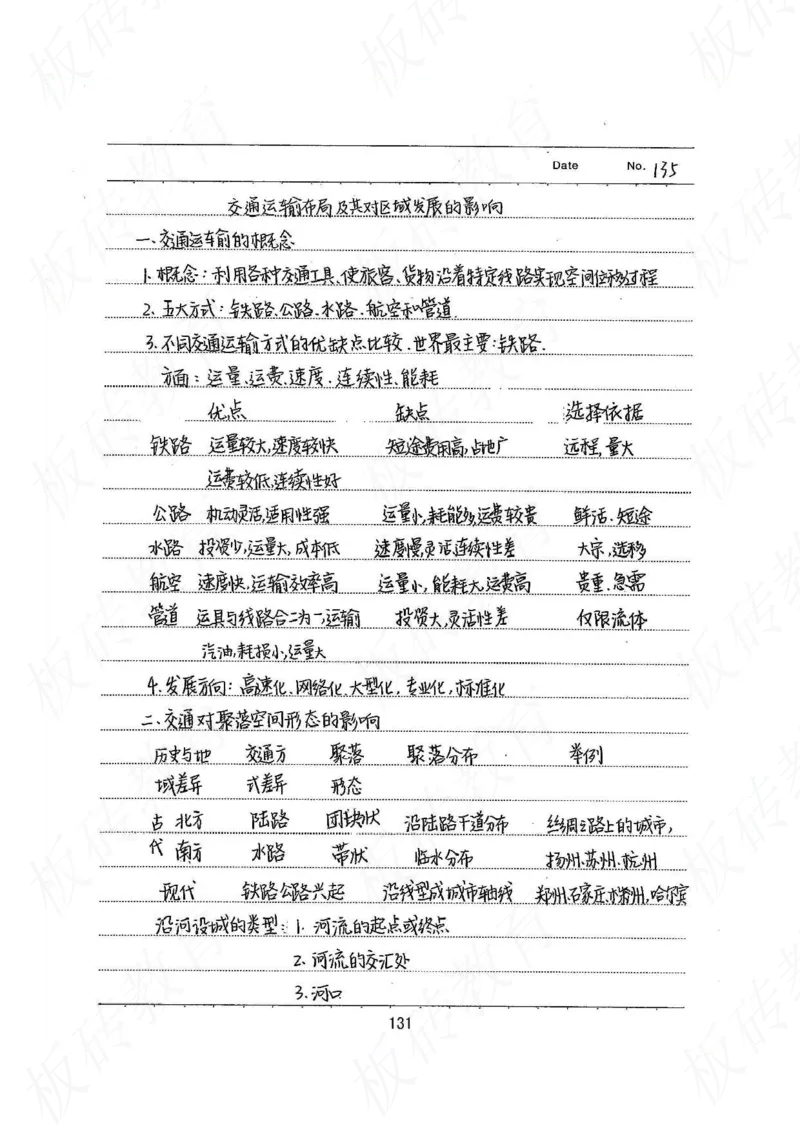 Date No. 135
交通运输布局及其对区域发展的影响
一、交通运输的概念
1. 概念：利用各种交通工具、使旅客、货物沿着特定线路实现空间位移过程
2. 五大方式：铁路、公路、水路、航空和管道
3. 不同交通运输方式的优缺点比较. 世界最主要：铁路.
方面：运量、运费、速度、连续性、能耗
优点 缺点 选择依据
铁路 运量较大,速度较快 短途费用高,占地广 远程,量大
运费较低,连续性好
公路 机动灵活,适用性强 运量小,耗能多,运费较贵 鲜活.短途
水路 投资少,运量大,成本低 速度慢,灵活连续性差 大宗,选移
航空 速度快,运输效率高 运量小,能耗大,运费高 贵重.急需
管道 运具与线路合二为一,运输 投资大,灵活性差 仅限流体
汽油,耗损小,运量大
4. 发展方向：高速化、网络化.大型化,专业化,标准化
二、交通对聚落空间形态的影响
历史与地 交通方 聚落 聚落分布 举例
域差异 式差异 形态
古 北方 陆路 团块状 沿陆路干道分布 丝绸之路上的城市,
代 南方 水路 带状 临水分布 扬州、苏州、杭州
现代 铁路公路兴起 沿线型成城市轴线 郑州,石家庄,株洲,哈尔滨
沿河设城的类型：1. 河流的起点或终点
2. 河流的交汇处
3. 河口
131
板砖教育
板砖教育
板砖教育